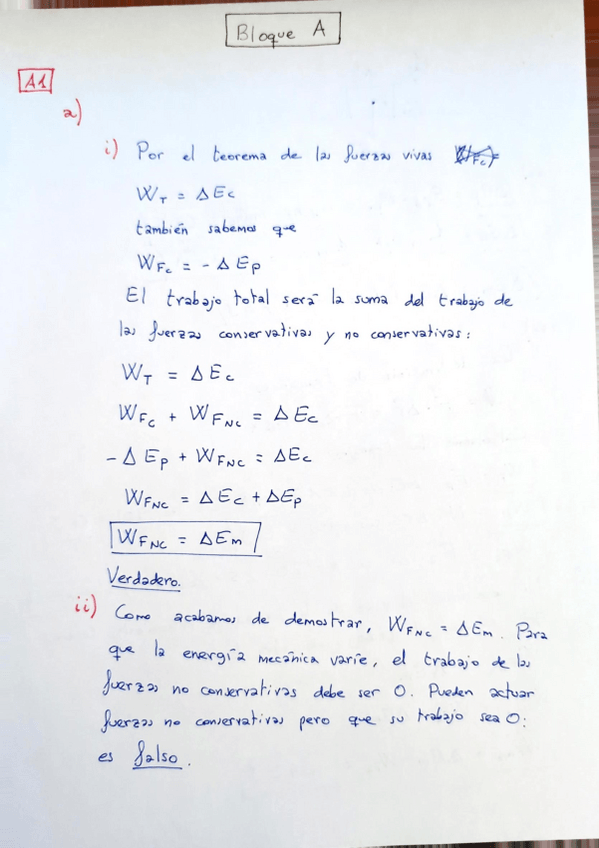 Bloque A
A1
a)
i) Por el teorema de las fuerzas vivas
W_T = ΔEc
también sabemos que
W_Fc = - ΔEp
El trabajo total será la suma del trabajo de
las fuerzas conservativas y no conservativas:
W_T = ΔEc
W_Fc + W_FNC = ΔEc
- ΔEp + W_FNC = ΔEc
W_FNC = ΔEc + ΔEp
W_FNC = ΔEm
Verdadero.
ii) Como acabamos de demostrar, W_FNC = ΔEm. Para
que la energía mecánica varíe, el trabajo de las
fuerzas no conservativas debe ser 0. Pueden actuar
fuerzas no conservativas pero que su trabajo sea 0:
es falso.